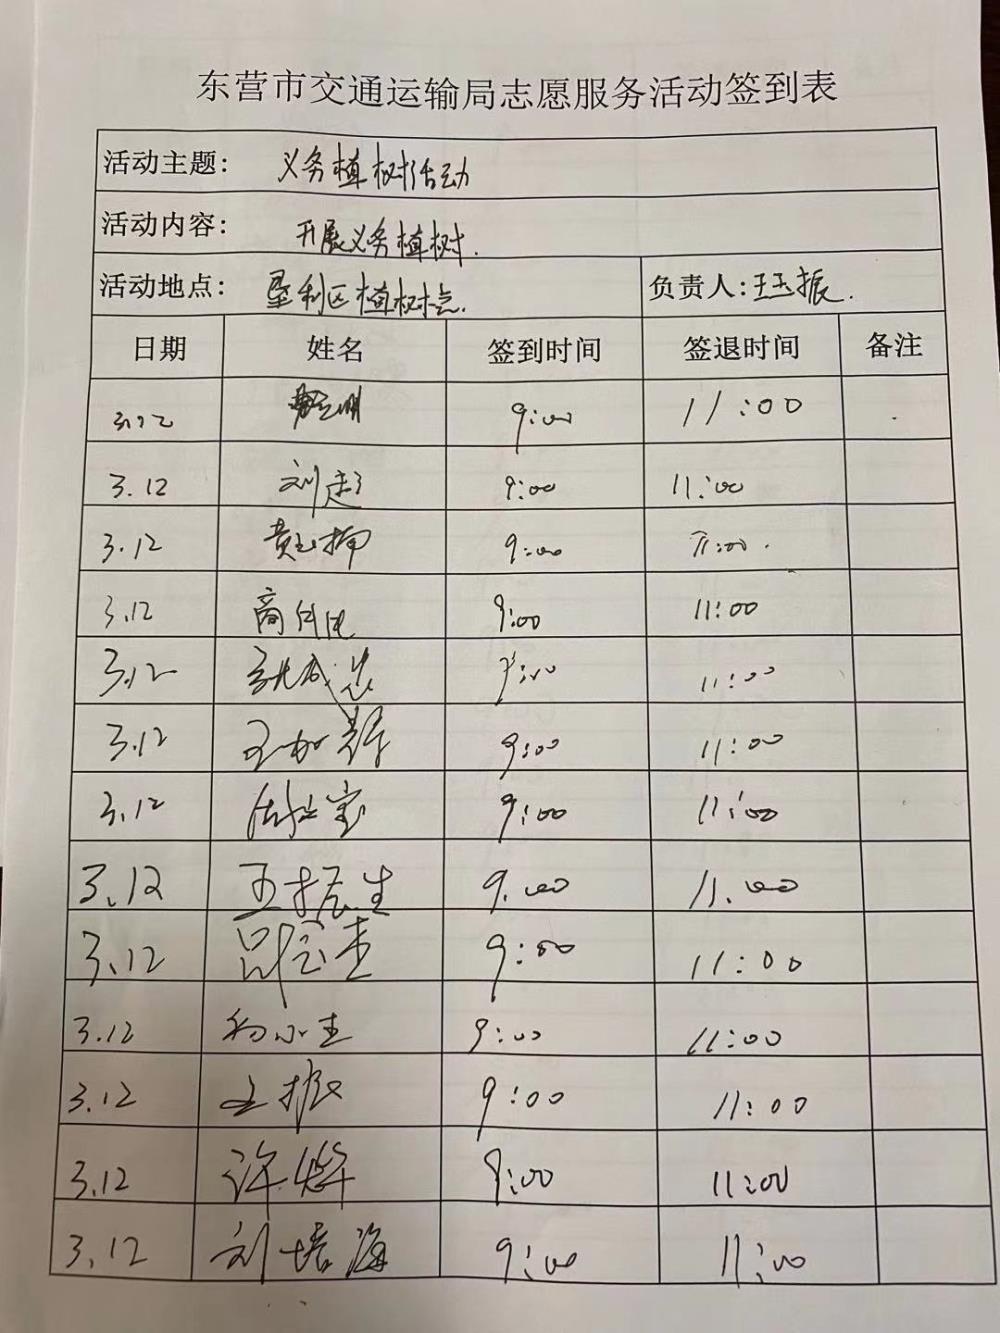 东营市交通运输局志愿服务活动签到表
活动主题: 义务植树活动
活动内容: 开展义务植树.
活动地点: 垦利区植树点. 负责人:王玉振.
日期 姓名 签到时间 签退时间 备注
3.12 9:00 11:00
3.12 刘超 9:00 11:00
3.12 9:00 11:00.
3.12 商 9:00 11:00
3.12 9:00 11:00
3.12 9:00 11:00
3.12 9:00 11:00
3.12 王振生 9.00 11.00
3.12 9:00 11:00
3.12 9:00 11:00
3.12 9:00 11:00
3.12 许 9:00 11:00
3.12 刘培海 9:00 11:00